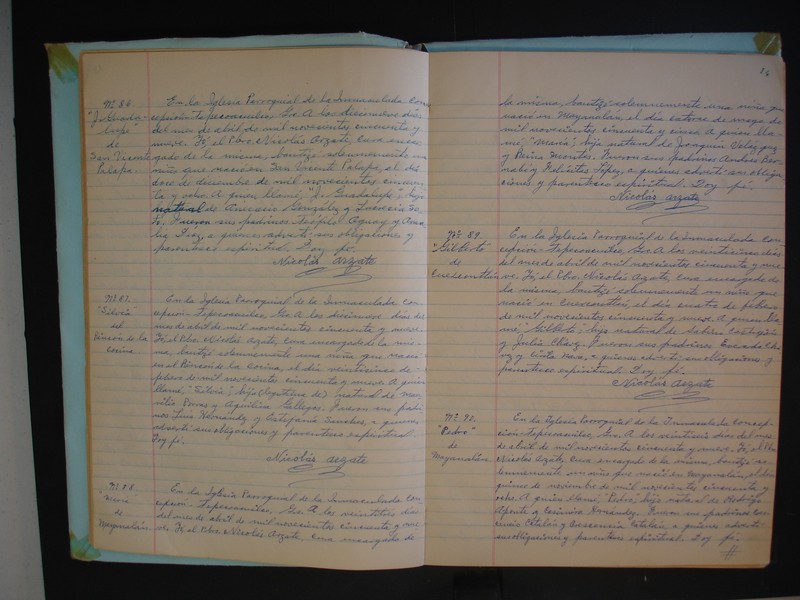 Nº 86
"J. Guada-
lupe"
de
San Vicente
Palapa.
En la Iglesia Parroquial de la Inmaculada Con-
cepción Tepecoacuilco, Gro. A los dieciocho días
del mes de abril de mil novecientos cincuenta y
nueve. Yo, el Pbro. Nicolás Arzate, Cura encar-
gado de la misma, bauticé solemnemente un
niño que nació en San Vicente Palapa, el día
doce de diciembre de mil novecientos cincuen-
ta y ocho. A quien llamé, "J. Guadalupe", hijo
natural de González y
Fueron sus padrinos Teófilo y
a quienes advertí sus obligaciones y
parentesco espiritual. Doy fé.
Nicolás Arzate
Nº 87.
"Silvia"
del
Rincón de la
Cocina
En la Iglesia Parroquial de la Inmaculada Con-
cepción - Tepecoacuilco, Gro. A los diecinueve días del
mes de abril de mil novecientos cincuenta y nueve.
Yo, el Pbro. Nicolás Arzate, Cura encargado de la mis-
ma, bauticé solemnemente una niña que nació
en el Rincón de la Cocina, el día veinticinco de fe-
brero de mil novecientos cincuenta y nueve. A quien
llamé, "Silvia", hija (legítima de) natural de
Porras y Agustina Gallegos. Fueron sus padri-
nos Luis Hernández y Estefanía Sánchez, a quienes
advertí sus obligaciones y parentesco espiritual.
Doy fé.
Nicolás Arzate
Nº 88.
"María"
de
Mayanalán
En la Iglesia Parroquial de la Inmaculada Con-
cepción - Tepecoacuilco, Gro. A los veintitrés días
del mes de abril de mil novecientos cincuenta y nue-
ve. Yo, el Pbro. Nicolás Arzate, Cura encargado de
la misma, bauticé solemnemente una niña que
nació en Mayanalán, el día catorce de
mil novecientos cincuenta y cinco. A quien lla-
mé, "María", hija natural de Joaquín Velázquez
y Montes. Fueron sus padrinos Andrés Ber-
nabé y López, a quienes advertí sus obliga-
ciones y parentesco espiritual. Doy fé.
Nicolás Arzate
Nº 89.
"Gilberto"
de
En la Iglesia Parroquial de la Inmaculada Con-
cepción - Tepecoacuilco, Gro. A los veinticinco días
del mes de abril de mil novecientos cincuenta y nue-
ve. Yo, el Pbro. Nicolás Arzate, Cura encargado de
la misma, bauticé solemnemente un niño que
nació en el día cuatro de febre-
ro de mil novecientos cincuenta y nueve. A quien lla-
mé, "Gilberto", hijo natural de
y Julia Chávez. Fueron sus padrinos Chá-
vez y a quienes advertí sus obligaciones y
parentesco espiritual. Doy fé.
Nicolás Arzate
Nº 90.
"Pedro"
de
Mayanalán.
En la Iglesia Parroquial de la Inmaculada Concep-
ción Tepecoacuilco, Gro. A los días del mes
de abril de mil novecientos cincuenta y nueve. Yo, el Pbro.
Nicolás Arzate, Cura encargado de la misma, bauticé so-
lemnemente un niño que nació en Mayanalán, el día
quince de noviembre de mil novecientos cincuenta y
ocho. A quien llamé, "Pedro", hijo natural de Rodrigo
Aponte y Hernández. Fueron sus padrinos
Catalán y Catalán, a quienes advertí
sus obligaciones y parentesco espiritual. Doy fé.